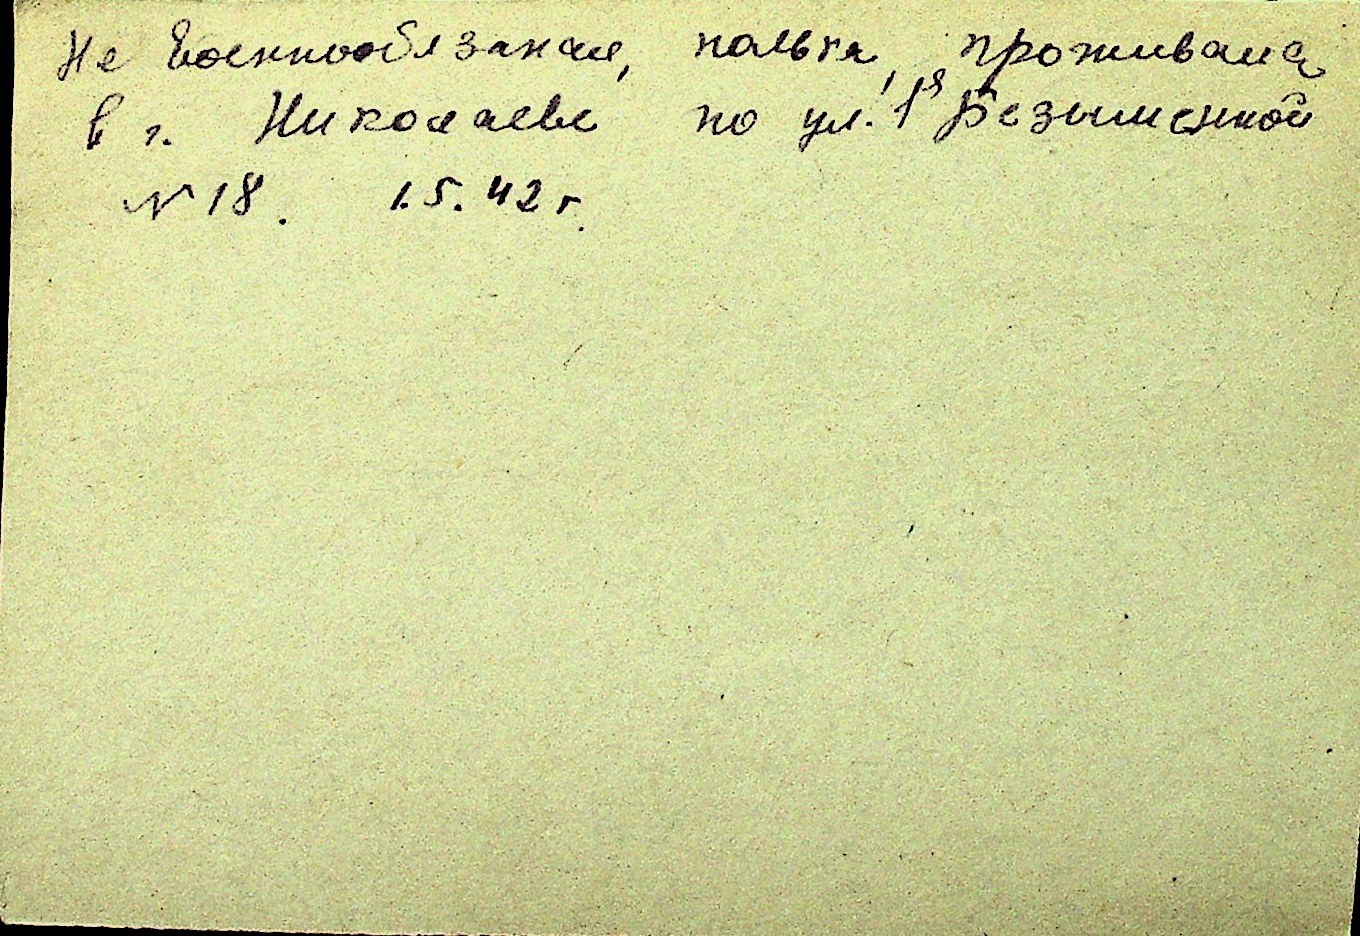 Не военнообязаная, полька, проживала
в г. Николаеве по ул. 1я Безыменной
№ 18. 1.5.42 г.